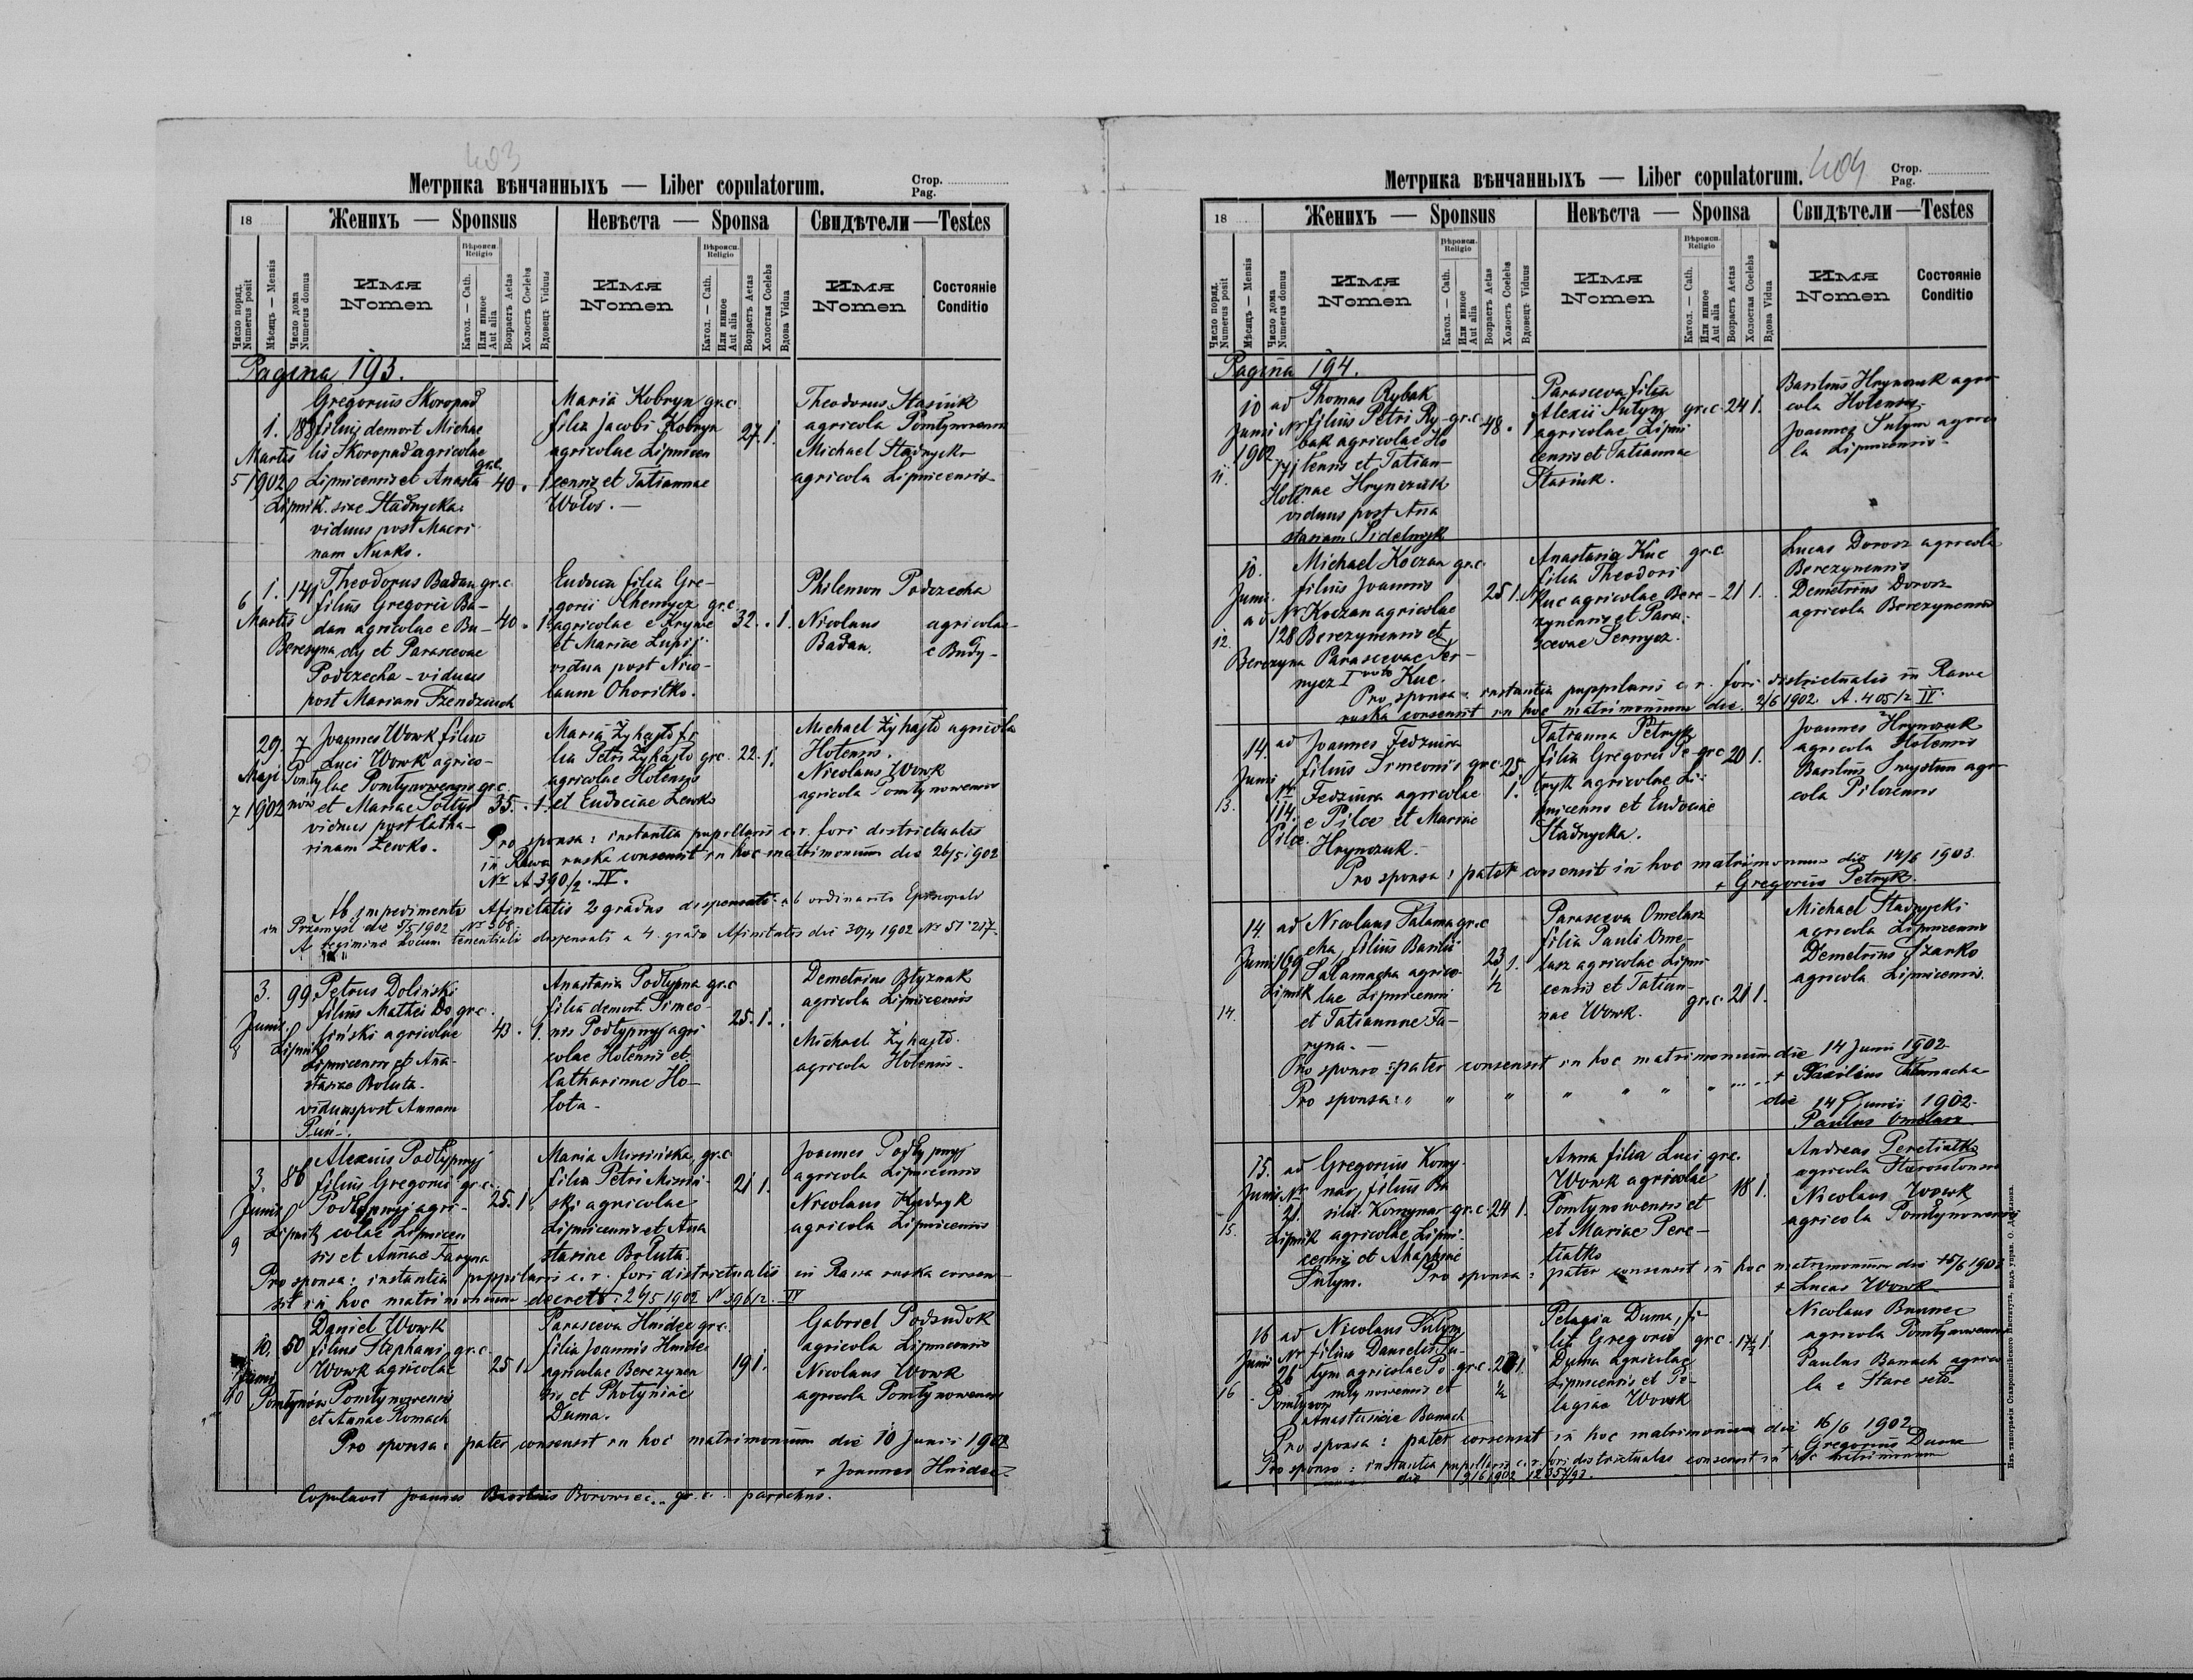 403
Метрика вѣнчанныхъ — Liber copulatorum.
Стор.
Pag.
18
Женихъ — Sponsus
Невѣста — Sponsa
Свидѣтели — Testes
Число поряд.
Numerus posit
Мѣсяцъ — Mensis
Число дома
Numerus domus
Имя
Nomen
Вѣроисп.
Religio
Катол. — Cath.
Или инное
Aut alia
Возрастъ Aetas
Холостъ Coelebs
Вдовецъ Viduus
Имя
Nomen
Вѣроисп.
Religio
Катол. — Cath.
Или инное
Aut alia
Возрастъ Aetas
Холостая Coelebs
Вдова Vidua
Имя
Nomen
Состояніе
Conditio
Pagina 193.
5
1.
Martis
1902
183
Lipnik.
Gregorius Skoropad
filius demort Michae
lis Skoropad agricolae
Lipnicensis et Anasta
siae Stadnycka.
viduus post Macri
nam Nunko.
gr.c.
40 . 1
Maria Kobryn gr.c.
filia Jacobi Kobryn
agricolae Lipnicen
censis et Tatiannae
Wolos. —
27. 1.
Theodorus Stasiuk
agricola Pomłynowensis
Michael Stadnycki
agricola Lipnicensis
6
1.
Martis
141
Berezyna
Theodorus Badan gr.c.
filius Gregorii Ba-
dan agricolae e Bu-
dy et Parascevae
Podczecha - viduus
post Mariam Fzendzuch
40 . 1
Eudocia filia Gre-
gorii Chemycz gr.c.
agricolae e Krywe
et Mariae Lupij.
vidua post Nico-
laum Ohoritko.
32. . 1.
Philemon Podczecha
Nicolaus
Badan.
agricolae
e Budy -
7
29.
Maji
1902
7
Pomły
nów
Joannes Wowk filius
Luci Wowk agrico-
lae Pomłynowensis gr.c.
et Mariae Sołtys
viduus post Catha-
rinam Lewko.
35. . 1.
Maria Żyhajło fi
lia Petri Żyhajło gr.c.
agricolae Hotensis
et Eudociae Lewko
22. 1.
Michael Żyhajło agricola
Hotensis.
Nicolaus Wowk
agricola Pomłynowensis
Pro sponsa: instantia pupillaris c.r. fori districtualis
in Rawa ruska consensit in hoc matrimonium die 26/5 1902
Nr A 390/2. IV.
Ab impedimento Afinitatis 2 gradus dispensati ab ordinariato Episcopali
in Przemyśl die 5/5 1902 Nr 308
A regimine Locum tenentiali dispensati a 4. gradu Afinitatis die 30/4 1902 Nr 51 257.
8
3.
Junii
99
Lipnik
Petrus Doliński
filius Mathei Do gr.c.
liński agricolae
Lipnicensis et Ana-
stasiae Boluta.
viduus post Annam
Puń.
43 . 1.
Anastasia Podłypna gr.c
filia demort. Simeo-
nis Podłypnyj agri
colae Hotensis et
Catharinae Ho-
łota.
25. 1.
Demetrius Błyznak
agricola Lipnicensis
Michael Żyhajło.
agricola Hotensis.
9
3.
Junii
86
Lipnik
Alexius Podłypnyj
filius Gregorii gr.c.
Podłypnyj agri-
colae Lipnicen
sis et Annae Faryna
25. 1
Maria Misińska gr.c
filia Petri Misiń-
ski agricolae
Lipnicensis et Ana
stasiae Boluta.
21 1.
Joannes Podłypnyj
agricola Lipnicensis
Nicolaus Kudryk
agricola Lipnicensis
Pro sponsa: instantia pupillaris c.r. fori districtualis in Rawa ruska consen-
sit in hoc matrimonium decreto 26/5 1902 A 396/2. IV
10
10.
Junii
50
Pomłynów
Daniel Wowk
filius Stephani gr.c.
Wowk agricolae
Pomłynowensis
et Annae Romach
25 1.
Parasceva Hnidec gr.c.
filia Joannis Hnidec
agricolae Berezynen
sis et Photyniae
Duma.
19 1.
Gabriel Podsudok
agricola Lipnicensis
Nicolaus Wowk
agricola Pomłynowensis
Pro sponsa: pater consensit in hoc matrimonium die 10 Junii 1902
+ Joannes Hnidec
Copulavit Joannes Basilius Borowiec gr.c. parochus.
404
Метрика вѣнчанныхъ — Liber copulatorum.
Стор.
Pag.
18
Женихъ — Sponsus
Невѣста — Sponsa
Свидѣтели — Testes
Число поряд.
Numerus posit
Мѣсяцъ — Mensis
Число дома
Numerus domus
Имя
Nomen
Вѣроисп.
Religio
Катол. — Cath.
Или инное
Aut alia
Возрастъ Aetas
Холостъ Coelebs
Вдовецъ Viduus
Имя
Nomen
Вѣроисп.
Religio
Катол. — Cath.
Или инное
Aut alia
Возрастъ Aetas
Холостая Coelebs
Вдова Vidua
Имя
Nomen
Состояніе
Conditio
Pagina 194.
11.
10
Junii
1902
ad
Nr
Thomas Rybak
filius Petri Ry- gr.c
bak agricolae Ho
tensis et Tatian-
nae Hrynczuk
viduus post Ana
stasiam Sidelnyk
48 . 1
Parasceva filia
Alexii Sutym gr.c
agricolae Lipni
censis et Tatiannae
Stasiuk.
24 1.
Basilius Hrynczuk agri-
cola Hotensis
Joannes Sutym agrico
la Lipnicensis
12.
10.
Junii.
ad Nr
128
Berezyna
Michael Koczan gr.c.
filius Joannis
Koczan agricolae
Berezynensis et
Parascevae Ser-
nycz I voto Kuc.
25 1.
Anastasia Kuc gr.c
filia Theodori
Kuc agricolae Bere-
zynensis et Para-
scevae Sernycz.
21 1.
Lucas Dorosz agricola
Berezynensis
Demetrius Dorosz
agricola Berezynensis
Pro sponsa: instantia puppilaris c.r. fori districtualis in Rawa
ruska consensit in hoc matrimonium die. 2/6 1902. A. 405/2 IV.
13.
14.
Junii
ad
Nr
114.
Pilce.
Joannes Fedziura
filius Simeonis gr.c.
Fedziura agricolae
e Pilce et Mariae
Hrynczuk.
25
1.
Tatianna Petryk
filia Gregorii Pe- gr.c
tryk agricolae Li-
pnicensis et Eudociae
Stadnycka.
20 1.
Joannes Hrynczuk
agricola Hotensis
Basilius agri
cola Pilcensis
Pro sponsa: pater consensit in hoc matrimonium die 14/6 1903.
+ Gregorius Petryk.
14.
14
Junii
ad
169
Lipnik
Nicolaus Salama gr.c
cha, filius Basilii
Salamacha agrico-
lae Lipnicensis
et Tatiannae Fa-
ryna. —
23 1.
1/2
Parasceva Omelasz
filia Pauli Ome-
lasz agricolae Lipni-
censis et Tatian-
nae Wowk.
gr.c. 21 1.
Michael Stadnycki
agricola Lipnicensis
Demetrius Szarko
agricola Lipnicensis.
Pro sponso: pater consensit in hoc matrimonium die 14 Junii 1902
+ Basilius Salamacha
Pro sponsa: " " " " " " die 14 Junii 1902.
Paulus Omelasz
15.
15.
Junii
ad
Nr
21.
Lipnik
Gregorius Komy-
nar, filius Ba
silii Komynar gr.c.
agricolae Lipni-
censis et Ahaphiae
Sutym.
24 1.
Anna filia Luci gr.c.
Wowk agricolae
Pomłynowensis et
et Mariae Pere-
tiatko
18 1.
Andreas Peretiatko
agricola Staroselensis
Nicolaus Wowk
agricola Pomłynowensis
Pro sponsa: pater consensit in hoc matrimonium die 15/6 1902
+ Lucas Wowk
16
16
Junii
ad
Nr
26
Pomłynów
Nicolaus Sutym
filius Danielis Su-
tym agricolae Po- gr.c.
młynowensis et
Anastasiae Banach
1/2
Pelagia Duma, fi-
lia Gregorii gr.c.
Duma agricolae
Lipnicensis et Pe-
lagiae Wowk
17 1/2 1.
Nicolaus Bunnec
agricola Pomłynowensis
Paulus Banach agrico
la e Stare seło
Pro sponsa: pater consensit in hoc matrimonium die 16/6 1902
+ Gregorius Duma
Pro sponso: instantia pupillaris c.r. fori districtualis consensit in hoc matrimonium
die 9/6 1902
Изъ типографіи Ставропигійского Института, подъ управ. О. Данилюка.